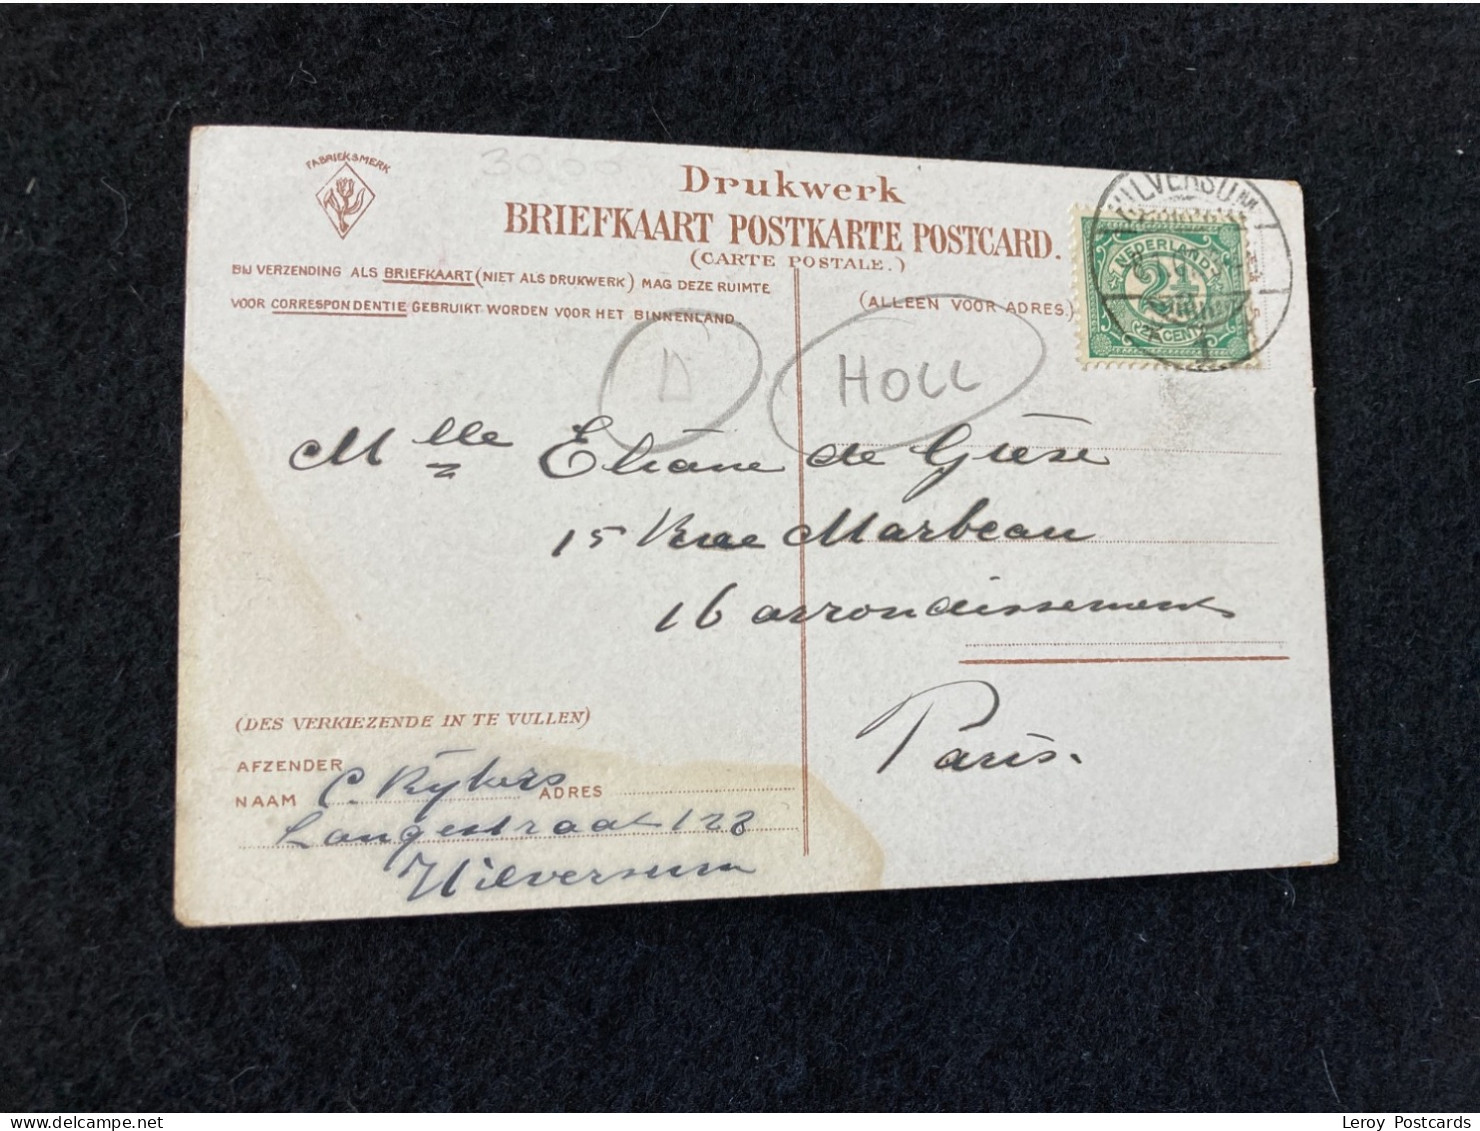 FABRIEKSMERK
30.00
Drukwerk
BRIEFKAART POSTKARTE POSTCARD.
(CARTE POSTALE.)
BIJ VERZENDING ALS BRIEFKAART (NIET ALS DRUKWERK) MAG DEZE RUIMTE
VOOR CORRESPONDENTIE GEBRUIKT WORDEN VOOR HET BINNENLAND.
(ALLEEN VOOR ADRES.)
HILVERSUM
NEDERLAND
2½
CENT
D
HOLL
Mlle Eliane de Giese
15 Rue Marbeau
16 arrondissement
Paris.
(DES VERKIEZENDE IN TE VULLEN)
AFZENDER
NAAM C. Rijkers ADRES
Langestraat 123
Hilversum
Leroy Postcards